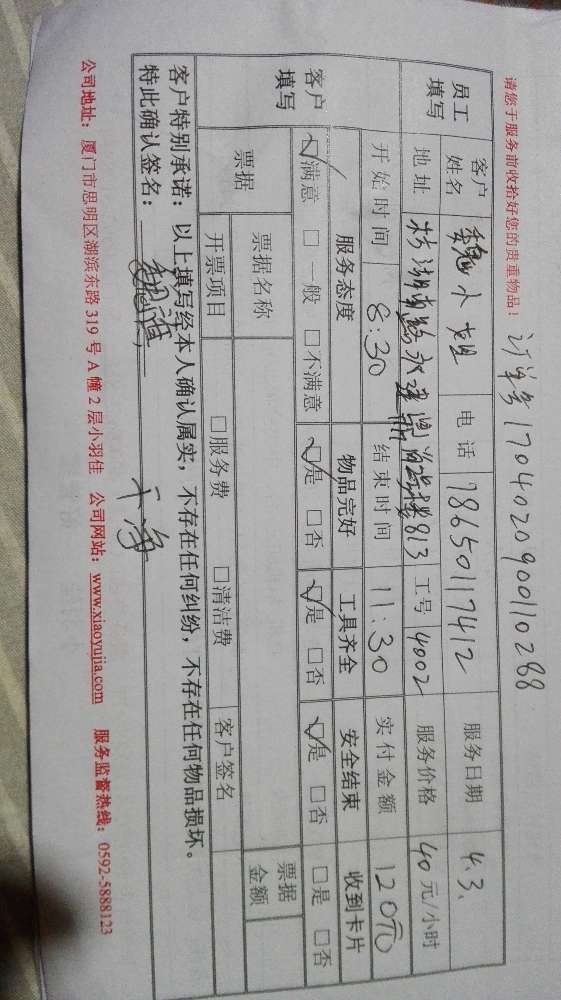 订单号1704020900110288
请您于服务前收拾好您的贵重物品！
员工填写 客户姓名 魏小姐 电话 18650117412 服务日期 4.3.
地址 813 工号 4002 服务价格 40元/小时
开始时间 8:30 结束时间 11:30 实付金额 120元
客户填写 服务态度 物品完好 工具齐全 安全结束 收到卡片
☑满意 □一般 □不满意 ☑是 □否 ☑是 □否 ☑是 □否 □是 □否
票据 票据名称 票据金额
开票项目 □服务费 □清洁费 客户签名
客户特别承诺：以上填写经本人确认属实，不存在任何纠纷，不存在任何物品损坏。
特此确认签名： 干净
公司地址：厦门市思明区湖滨东路319号A幢2层小羽佳 公司网站：www.xiaoyujia.com 服务监督热线：0592-5888123